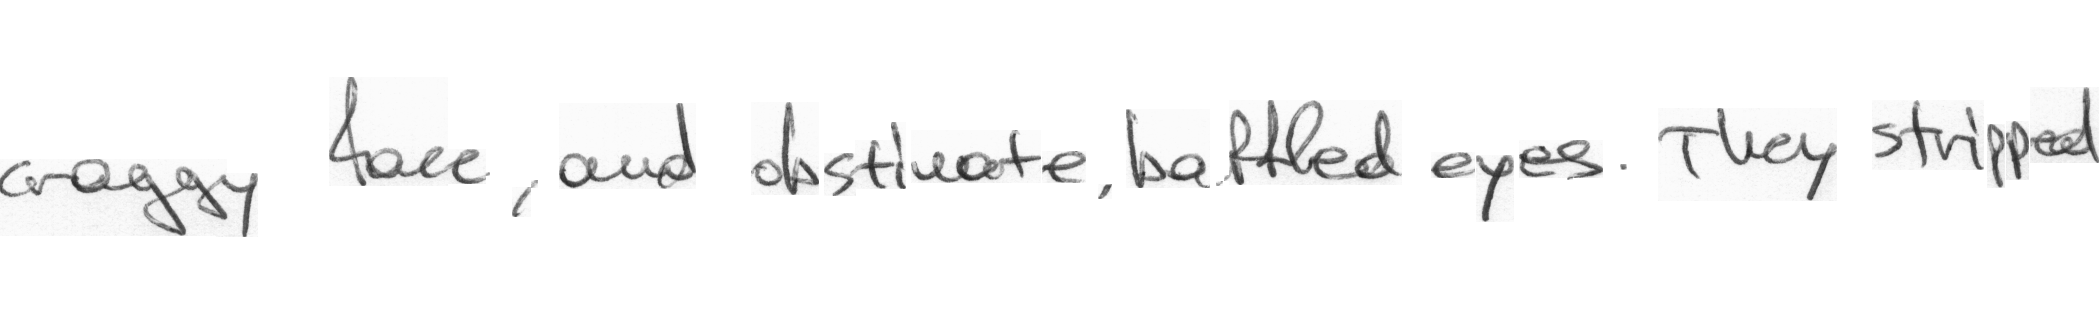 craggy face, and obstinate, baffled eyes. They stripped